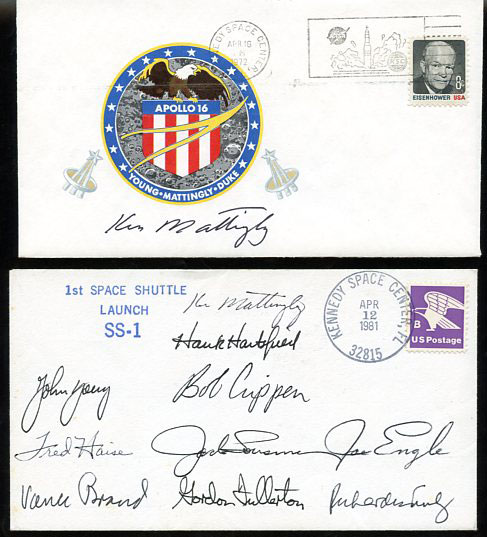 KENNEDY SPACE CENTER,
APR 16
1972
8c
EISENHOWER USA
APOLLO 16
YOUNG • MATTINGLY • DUKE
Ken Mattingly
1st SPACE SHUTTLE
LAUNCH
SS-1
Ken Mattingly
Hank Hartsfield
KENNEDY SPACE CENTER, FL
APR
12
1981
32815
B
US Postage
John Young
Bob Crippen
Fred Haise
Jack Lousma
Joe Engle
Vance Brand
Gordon Fullerton
Richard Truly